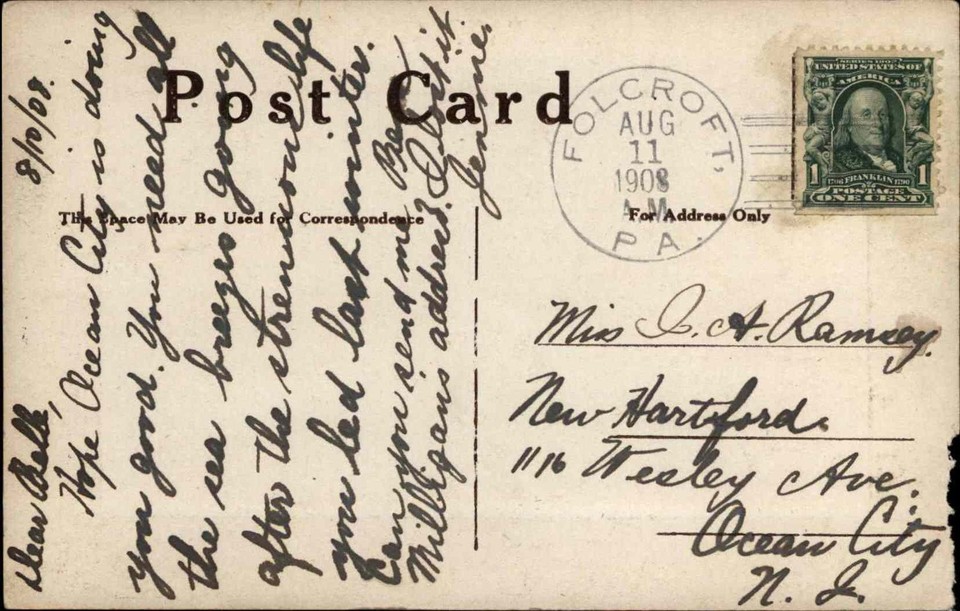 Post Card
This Space May Be Used for Correspondence
For Address Only
FOLCROFT,
AUG
11
1908
A.M.
PA.
SERIES 1902
UNITED STATES OF
AMERICA
1 1
1706 FRANKLIN 1790
POSTAGE
ONE CENT
8/10/08.
Dear Belle,
Hope Ocean City is doing
you good. You need all
the sea breezes going
after the strenuous life
you led last winter.
Can you send me Bea
Milligans address.
Jennie.
Miss I. A. Ramsey.
New Hartford.
1116 Wesley Ave.
Ocean City
N. J.